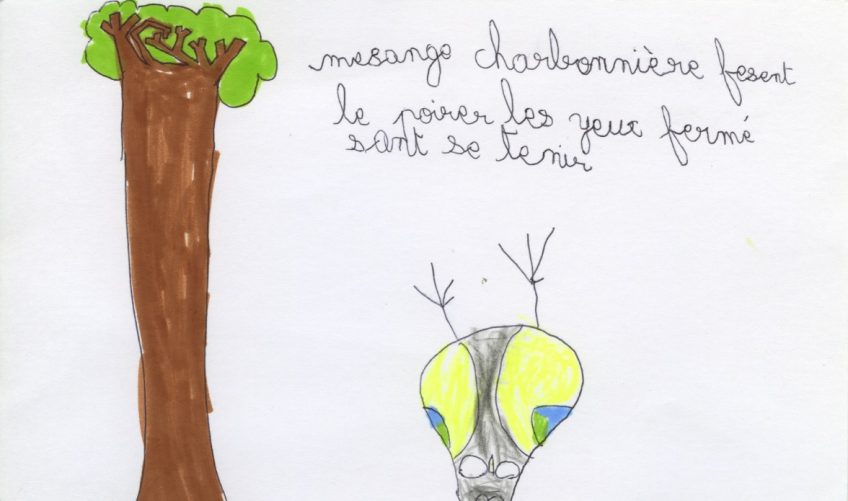 mesange charbonnière fesent
le poirer les yeux fermé
sant se tenir